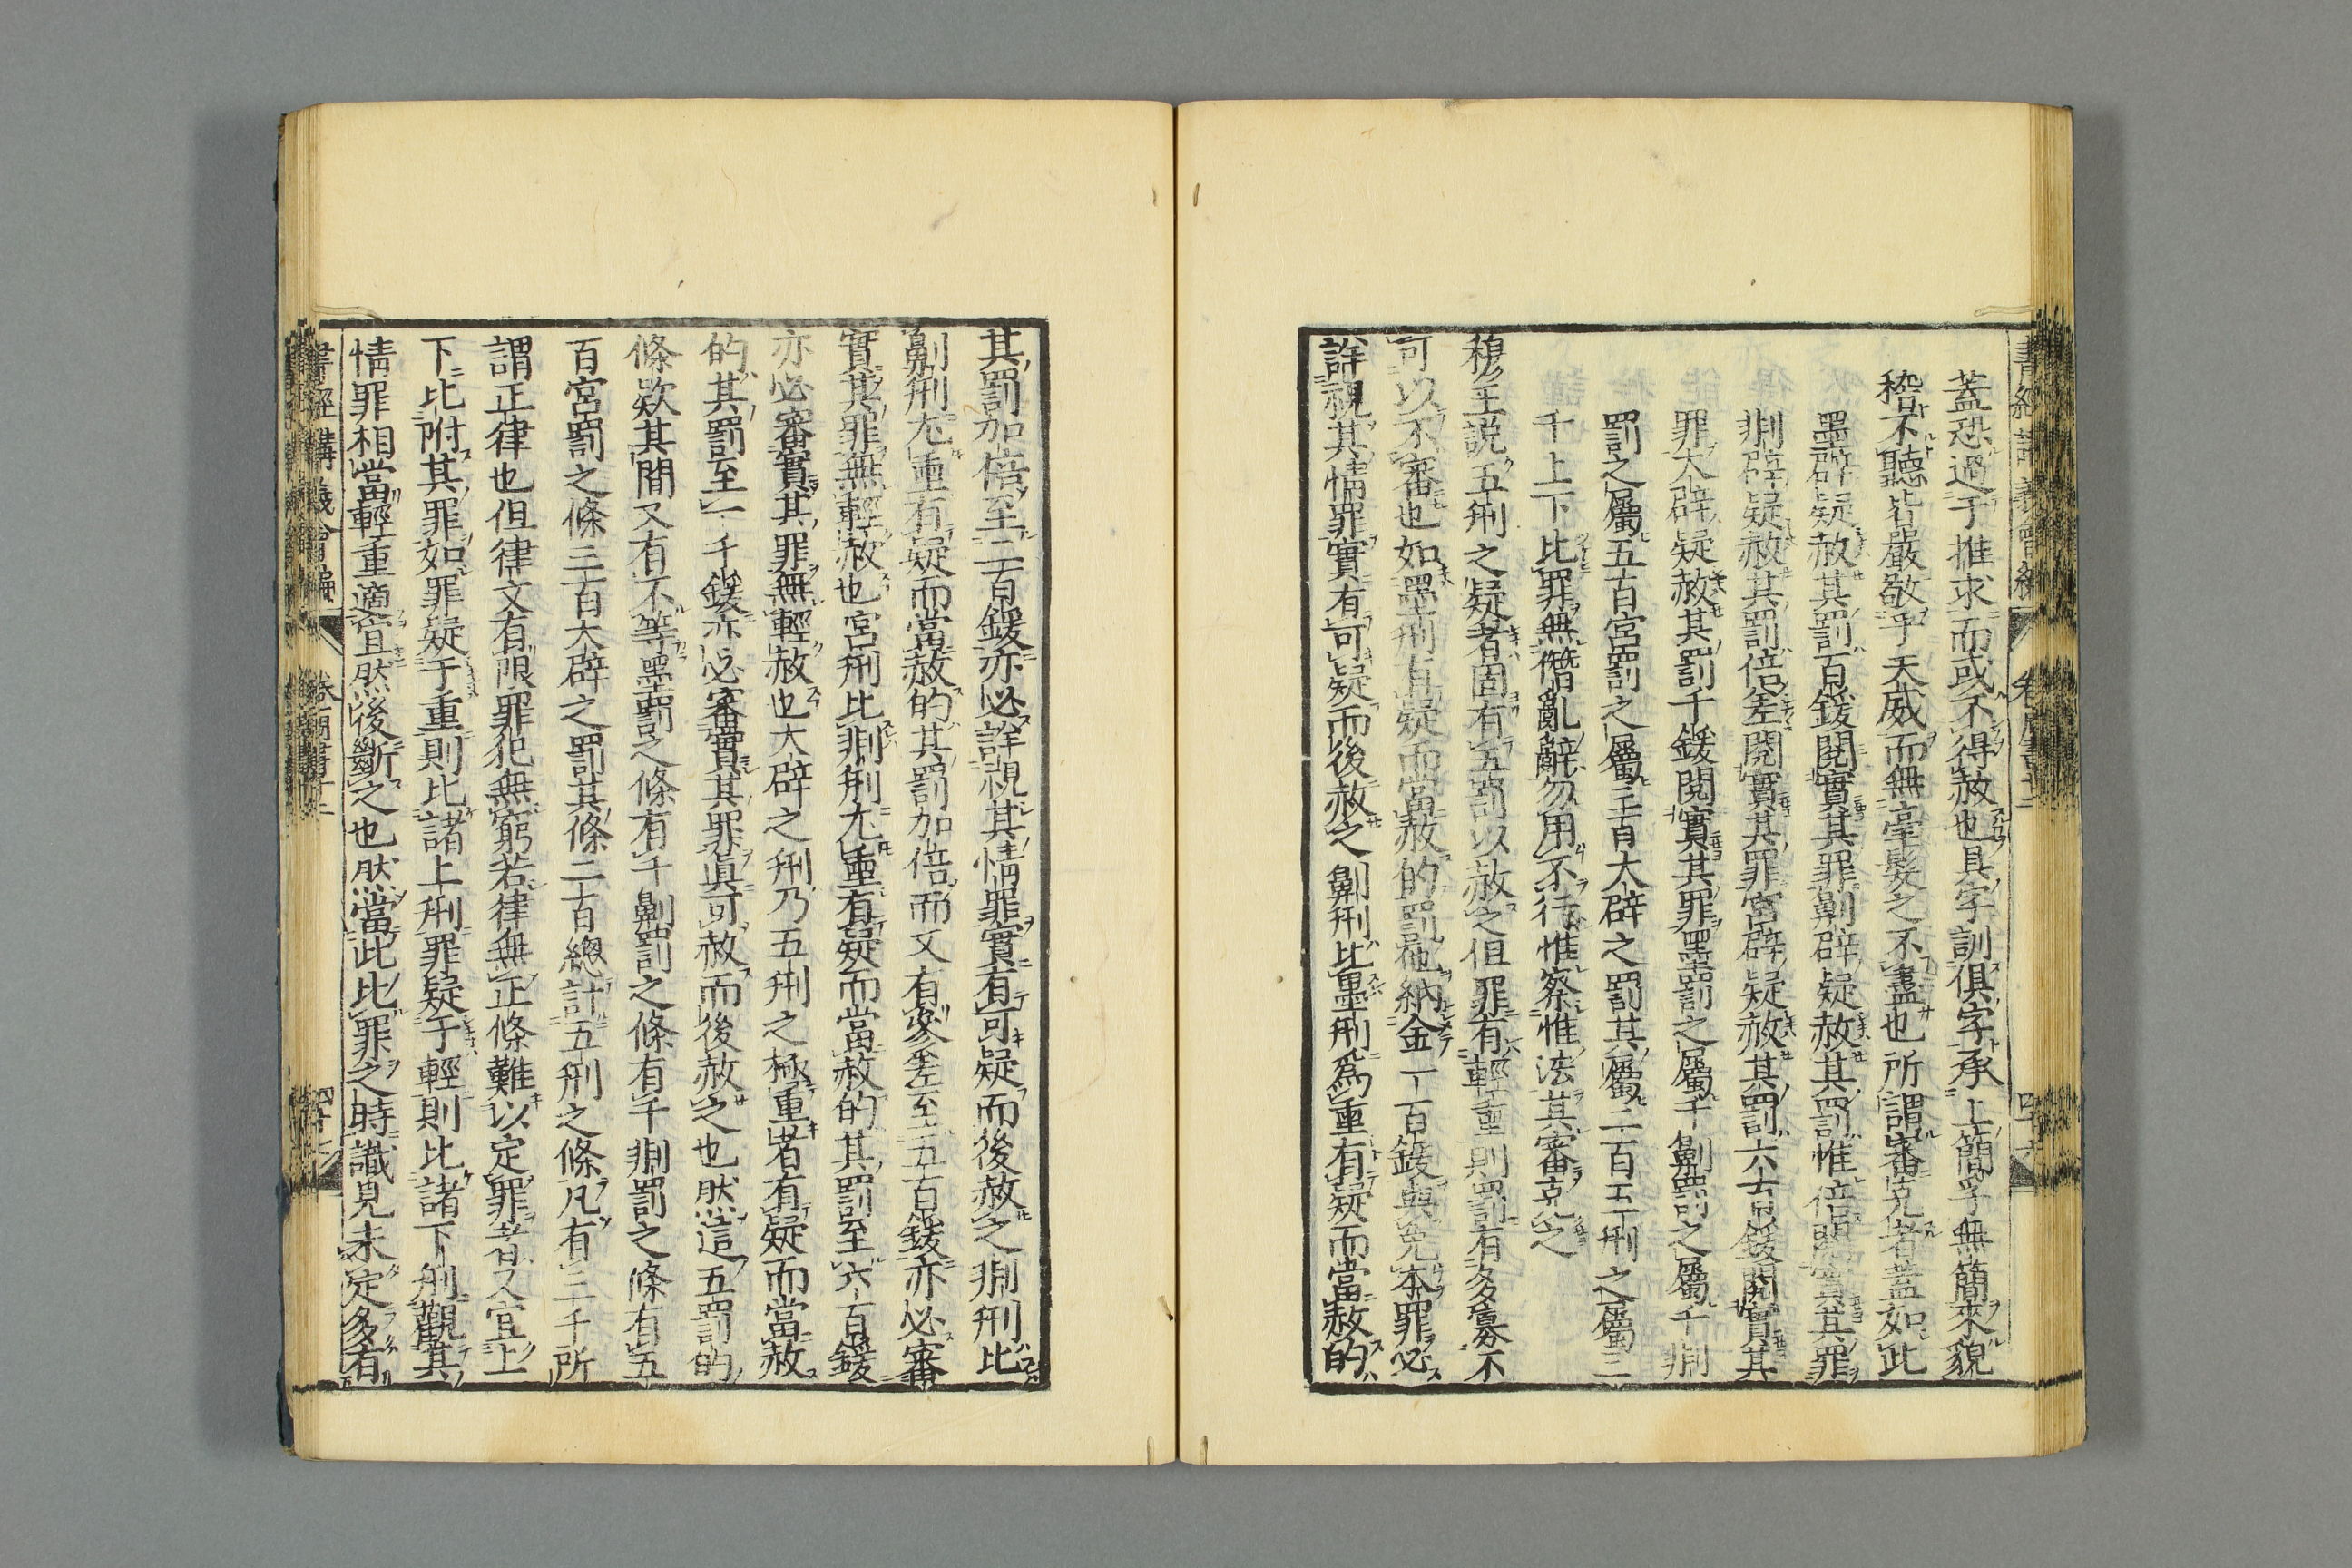 蓋恐過于推求而或不得赦也具字訓俱字承上簡孚無簡來貌
稽不聽皆嚴敬乎天威而無毫髮之不盡也所謂審克者蓋如此
墨辟疑赦其罰百鍰閱實其罪劓辟疑赦其罰惟倍閱實其罪
剕辟疑赦其罰倍差閱實其罪宮辟疑赦其罰六百鍰閱實其
罪大辟疑赦其罰千鍰閱實其罪墨罰之屬千劓罰之屬千剕
罰之屬五百宮罰之屬三百大辟之罰其屬二百五刑之屬三
千上下比罪無僭亂辭勿用不行惟察惟法其審克之
穆王説五刑之疑者固有五罰以赦之但罪有輕重則罰有多寡不
可以不審也如墨刑有疑而當赦的罰他納金一百鍰與免本罪必
詳視其情罪實有可疑而後赦之劓刑比墨刑爲重有疑而當赦的
書經講義會編 卷 周書十二 四十六
其罰加倍至二百鍰亦必詳視其情罪實有可疑而後赦之剕刑比
劓刑尤重有疑而當赦的其罰加倍而又有參差至五百鍰亦必審
實其罪無輕赦也宮刑比剕刑尤重有疑而當赦的其罰至六百鍰
亦必審實其罪無輕赦也大辟之刑乃五刑之極重者有疑而當赦
的其罰至一千鍰亦必審實其罪眞可赦而後赦之也然這五罰的
條欵其間又有不等墨罰之條有千劓罰之條有千剕罰之條有五
百宮罰之條三百大辟之罰其條二百總計五刑之條凡有三千所
謂正律也但律文有限罪犯無窮若律無正條難以定罪者又宜上
下比附其罪如罪疑于重則比諸上刑罪疑于輕則比諸下刑觀其
情罪相當輕重適宜然後斷之也然當此比罪之時識見未定多有
書經講義會編 卷 周書十二 四十七